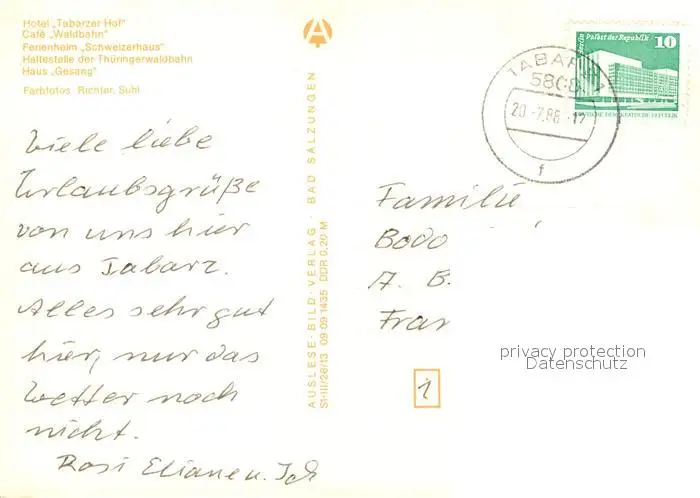 Hotel „Tabarzer Hof“
Café „Waldbahn“
Ferienheim „Schweizerhaus“
Haltestelle der Thüringerwaldbahn
Haus „Gesang“
Farbfotos Richter, Suhl
Viele liebe
Urlaubsgrüße
von uns hier
aus Tabarz.
Alles sehr gut
hier, nur das
Wetter noch
nicht.
Rosi Eliane u. Ich
AUSLESE-BILD-VERLAG · BAD SALZUNGEN
S1-III/26/13 09 09 1435 DDR 0,20 M
Berlin Palast der Republik 10
DEUTSCHE DEMOKRATISCHE REPUBLIK
TABARZ 1
5808
20.-7.86.-17
f
Familie
Bodo
A. B.
Fran
1
privacy protection
Datenschutz